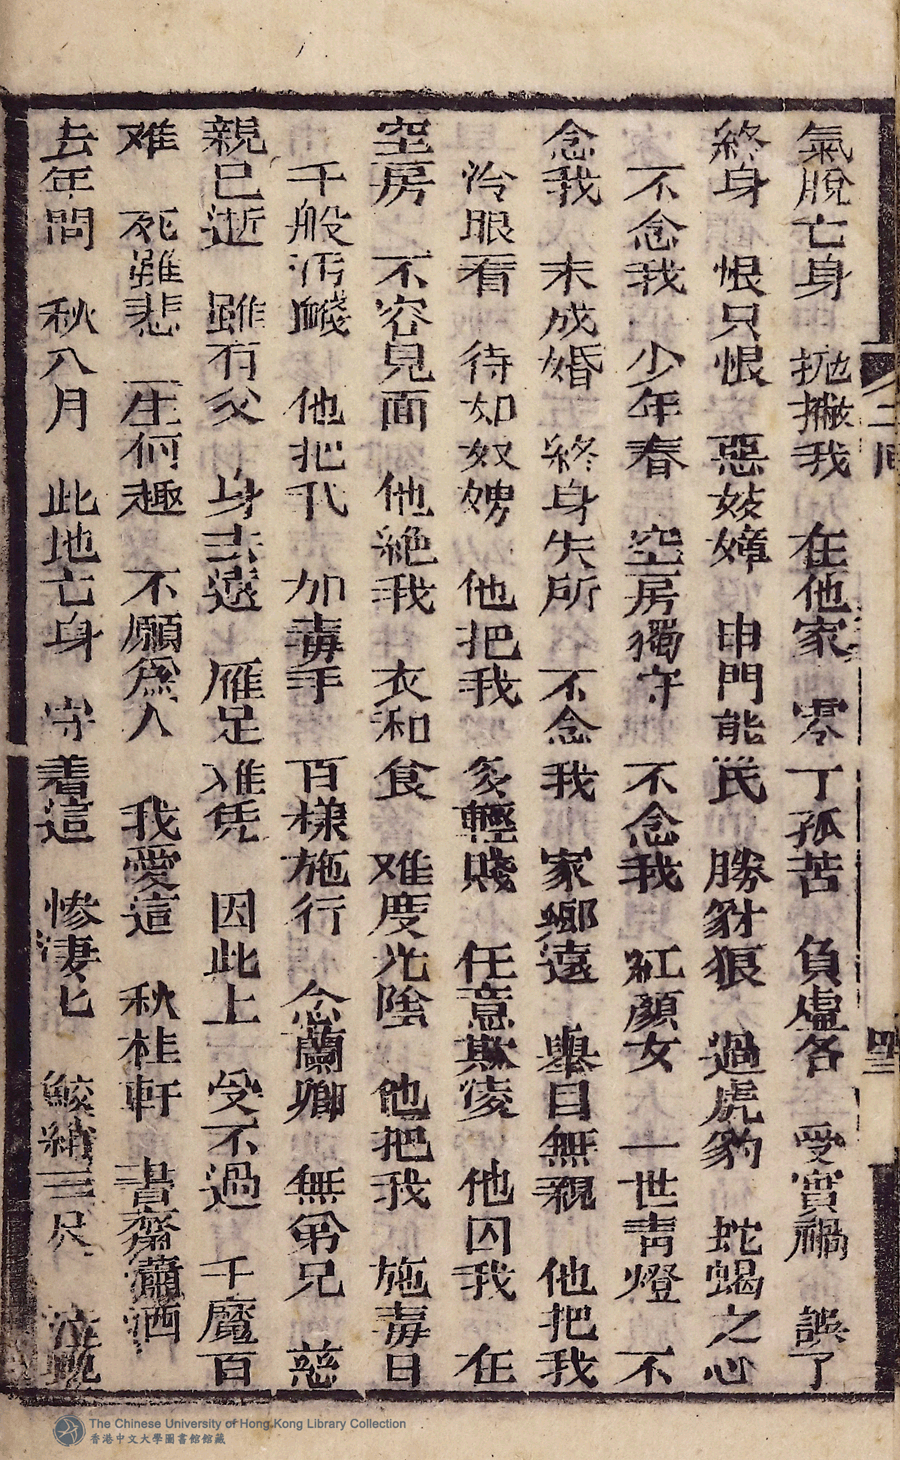 氣脫亡身 抛撇我 在他家 零丁孤苦 負虛名 受實禍 誤了
終身 恨只恨 惡妓嫜 申門能氏 勝豺狼 過虎豹 蛇蝎之心
不念我 少年春 空房獨守 不念我 紅顏女 一世青燈 不
念我 未成婚 終身失所 不念我 家鄉遠 舉目無親 他把我
冷眼看 待如奴婢 他把我 多輕賤 任意欺凌 他囚我 在
空房 不容見面 他絶我 衣和食 难度光陰 他把我 施毒日
千般汚衊 他把我 加毒手 百樣施行 念蘭卿 無弟兄 慈
親已逝 雖有父 身去遠 雁足难凭 因此上 受不過 千魔百
难 死雖悲 生何趣 不願為人 我愛這 秋桂軒 書齋瀟洒
去年間 秋八月 此地亡身 守着這 慘凄匕 鮫綃三尺
二回
四三
The Chinese University of Hong Kong Library Collection
香港中文大學圖書館館藏